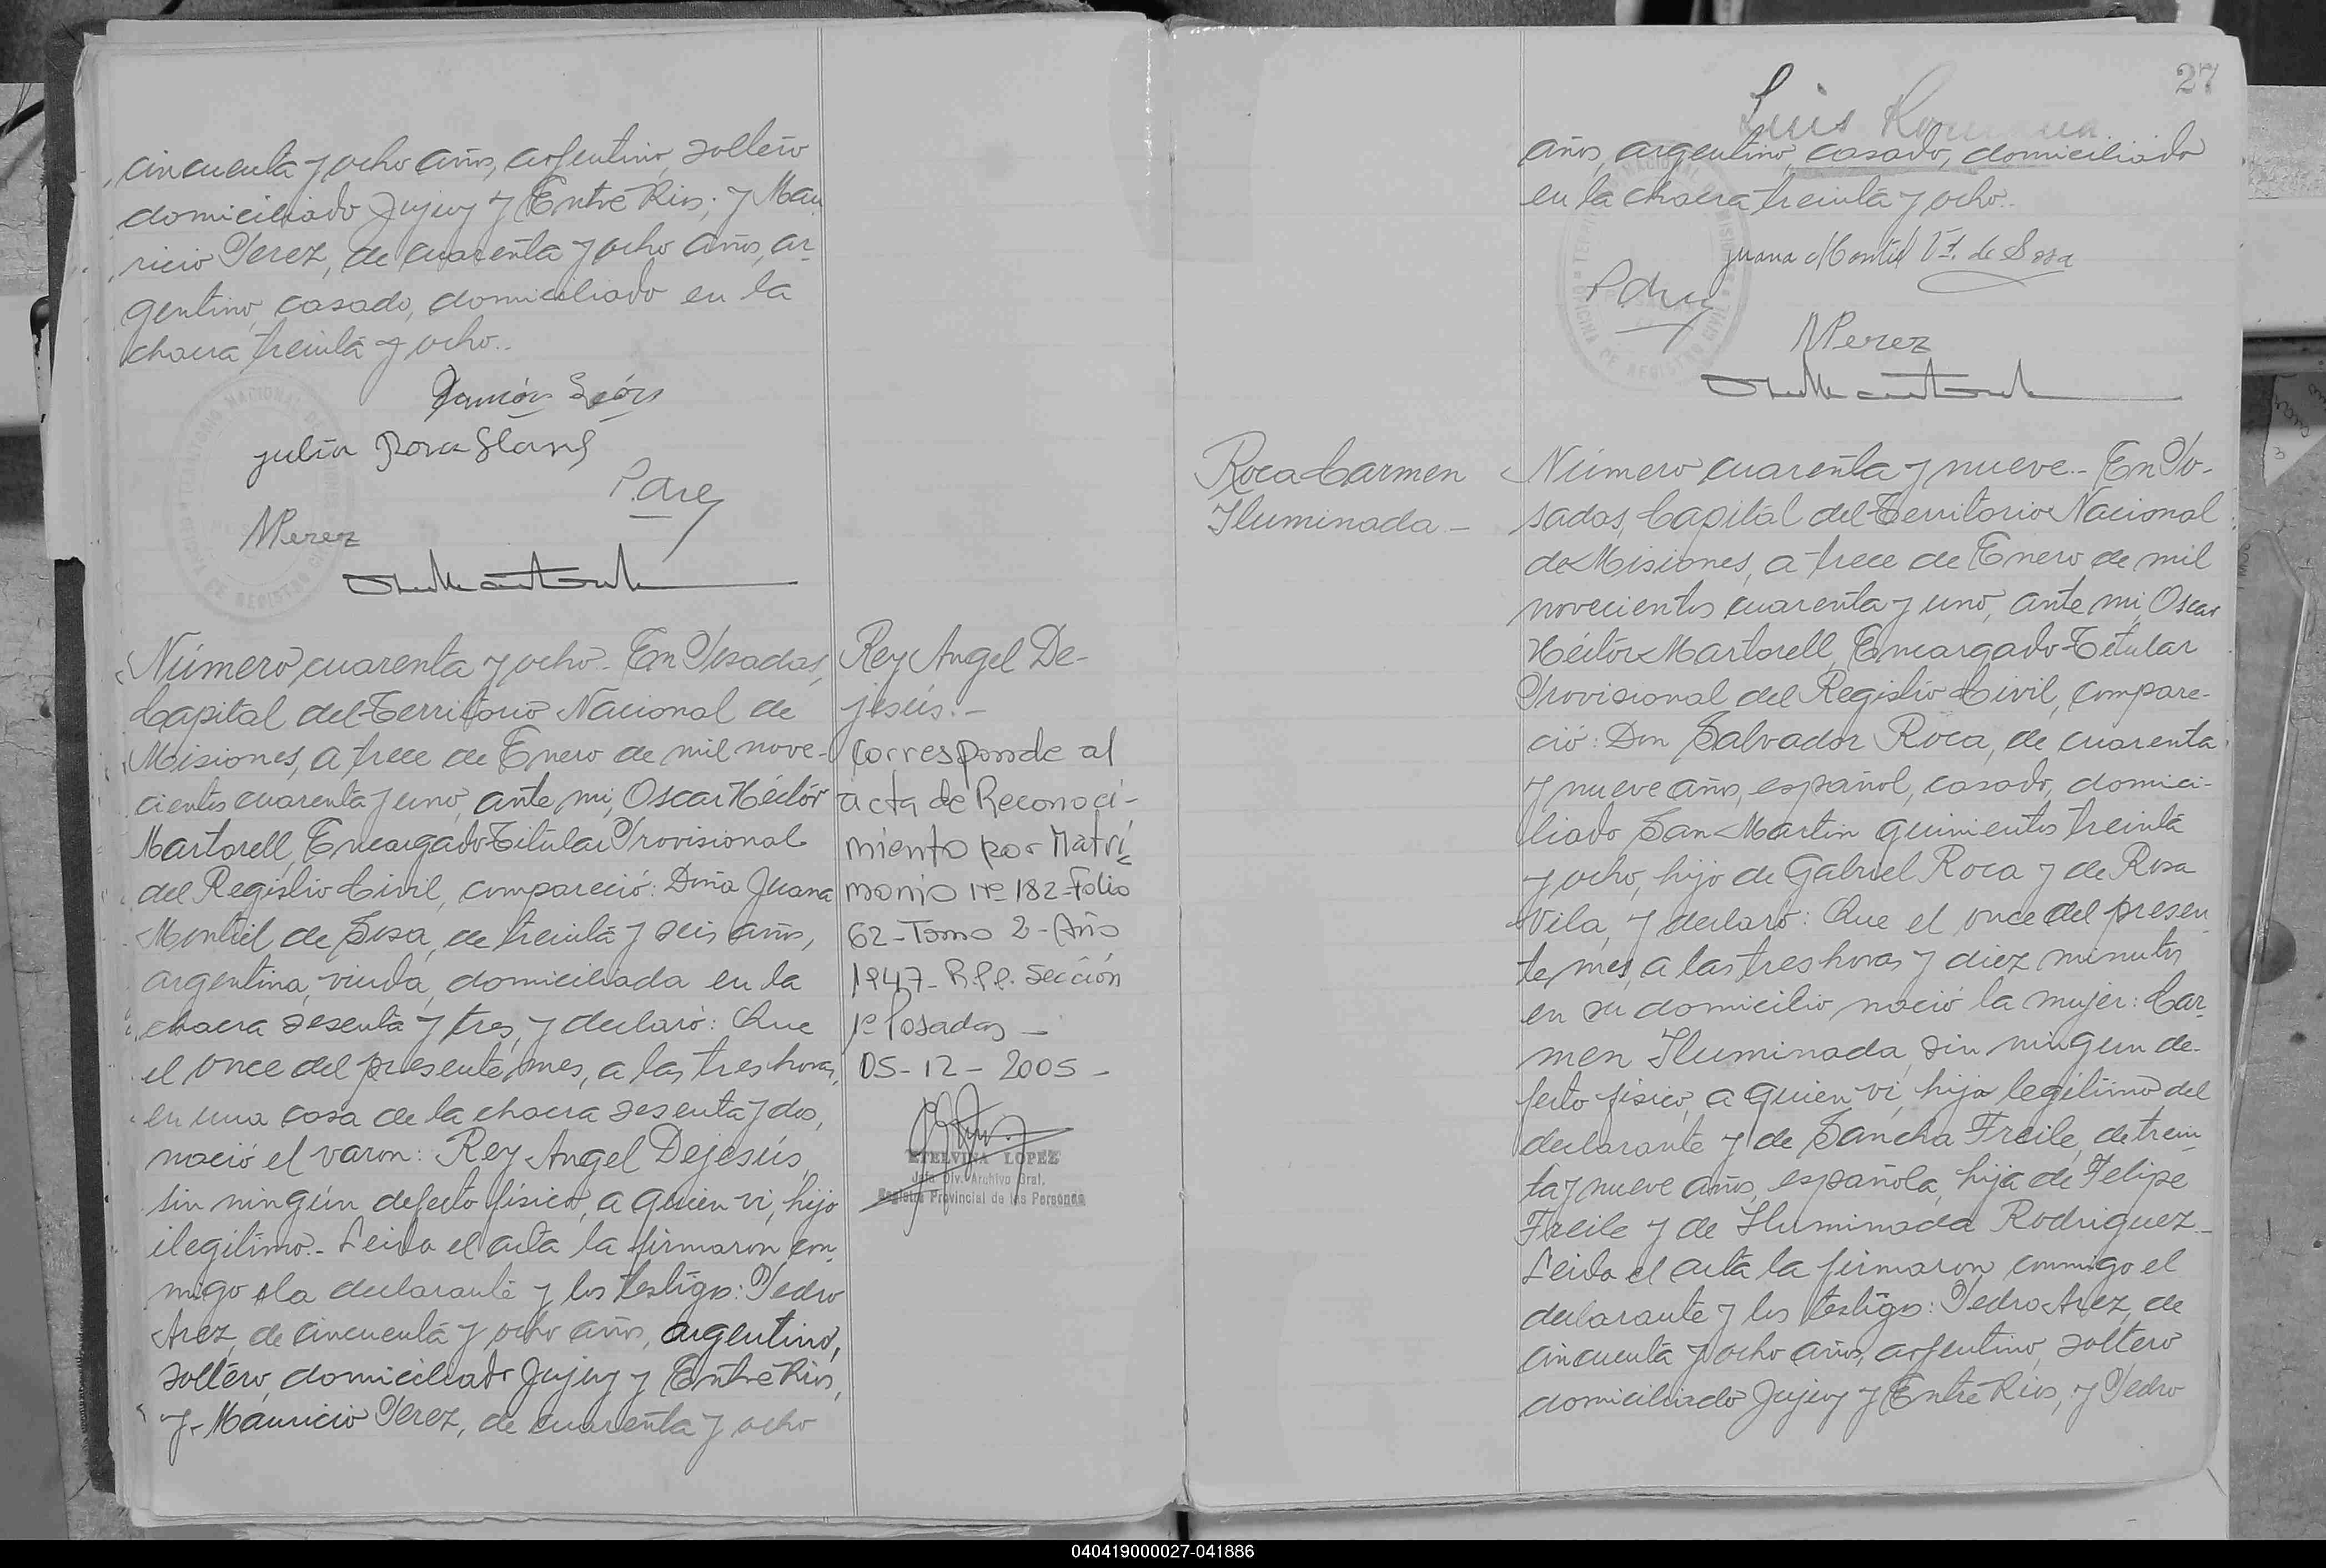 cincuenta y ocho años, argentino, soltero
domiciliado Jujuy y Entre Rios; y Mau
ricio Perez, de cuarenta y ocho años, ar-
gentino, casado, domiciliado en la
chacra treinta y ocho.-
Ramón León
julia Rosa
P. Arez
MPerez
Número cuarenta y ocho.- En Posadas,
Capital del Territorio Nacional de
Misiones, a trece de Enero de mil nove-
cientos cuarenta y uno, ante mi, Oscar Héctor
Martorell, Encargado Titular Provisional
del Registro Civil, compareció: Doña Juana
Montiel de Sosa, de treinta y seis años,
argentina, viuda, domiciliada en la
chacra sesenta y tres, y declaró: Que
el once del presente mes, a las tres horas,
en una casa de la chacra sesenta y dos,
nació el varon: Rey Angel Dejesús,
sin ningún defecto físico, a quien vi, hijo
ilegítimo.- Leida el acta la firmaron con-
migo la declarante y los testigos: Pedro
Arez, de cincuenta y ocho años, argentino,
soltero, domiciliado Jujuy y Entre Rios,
y- Mauricio Perez, de cuarenta y ocho
Rey Angel De-
jesús.-
Corresponde al
acta de Reconoci-
miento por Matri-
monio Nº 182-Folio
62-Tomo 2-Año
1947- R.P.P. Sección
1º Posadas -
05-12-2005-
ETELVINA LOPEZ
Jefa Div. Archivo Gral.
Registro Provincial de las Personas
27
Luis
años, argentino, casado, domiciliado
en la chacra treinta y ocho.-
juana Montiel Vd. de Sosa
P. Arez
MPerez
Roca Carmen
Iluminada -
Número cuarenta y nueve.- En Po-
sadas, Capital del Territorio Nacional
de Misiones, a trece de Enero de mil
novecientos cuarenta y uno, ante mi, Oscar
Héctor Martorell, Encargado Titular
Provisional del Registro Civil, compare-
ció: Don Salvador Roca, de cuarenta
y nueve años, español, casado, domici-
liado San Martin quinientos treinta
y ocho, hijo de Gabriel Roca y de Rosa
Vila, y declaró: Que el once del presen-
te mes, a las tres horas y diez minutos
en su domicilio nació la mujer: Car-
men Iluminada, sin ningun de-
fecto físico, a quien vi, hija legítimo del
declarante y de Sancha Freile, de trein-
ta y nueve años, española, hija de Felipe
Freile y de Iluminada Rodriguez.-
Leida el acta la firmaron conmigo el
declarante y los testigos: Pedro Arez, de
cincuenta y ocho años, argentino, soltero
domiciliado Jujuy y Entre Rios, y Pedro
040419000027-041886